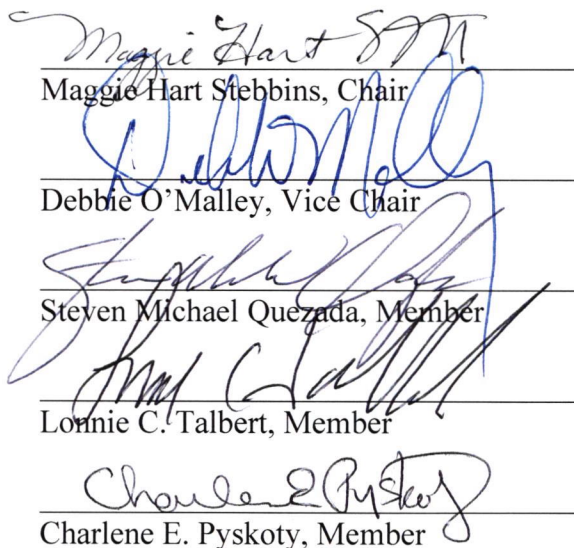 Maggie Hart
Maggie Hart Stebbins, Chair
Debbie O'Malley, Vice Chair
Steven Michael Quezada, Member
Lonnie C. Talbert, Member
Charlene E Pyskoty
Charlene E. Pyskoty, Member